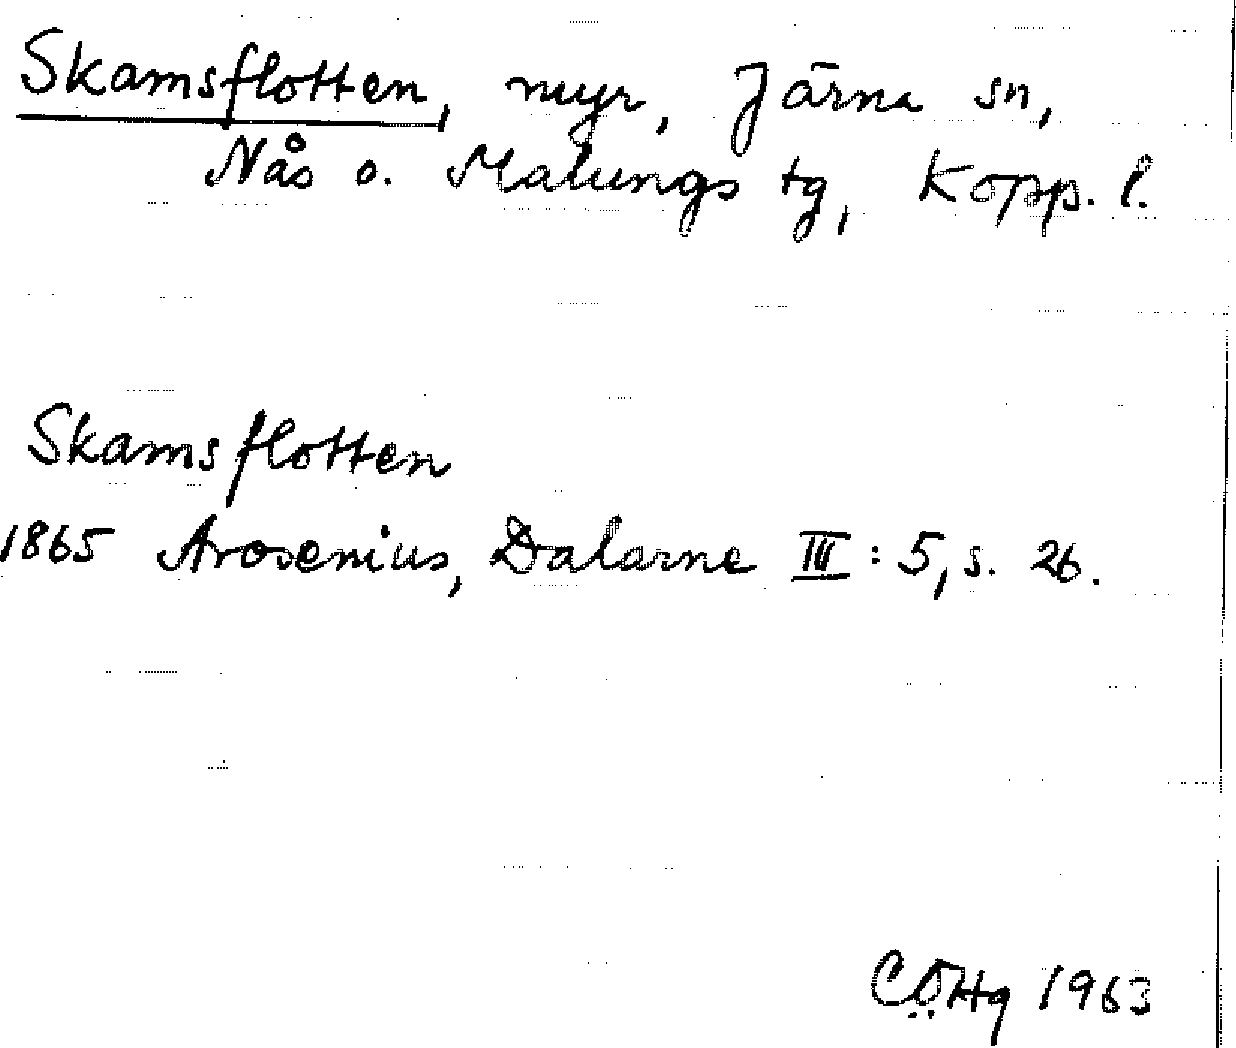 Skamsflotten, myr, Järna sn,
Nås o. Malungs tg, Kopp. l.
Skamsflotten
1865 Arosenius, Dalarne III : 5, s. 26.
1963